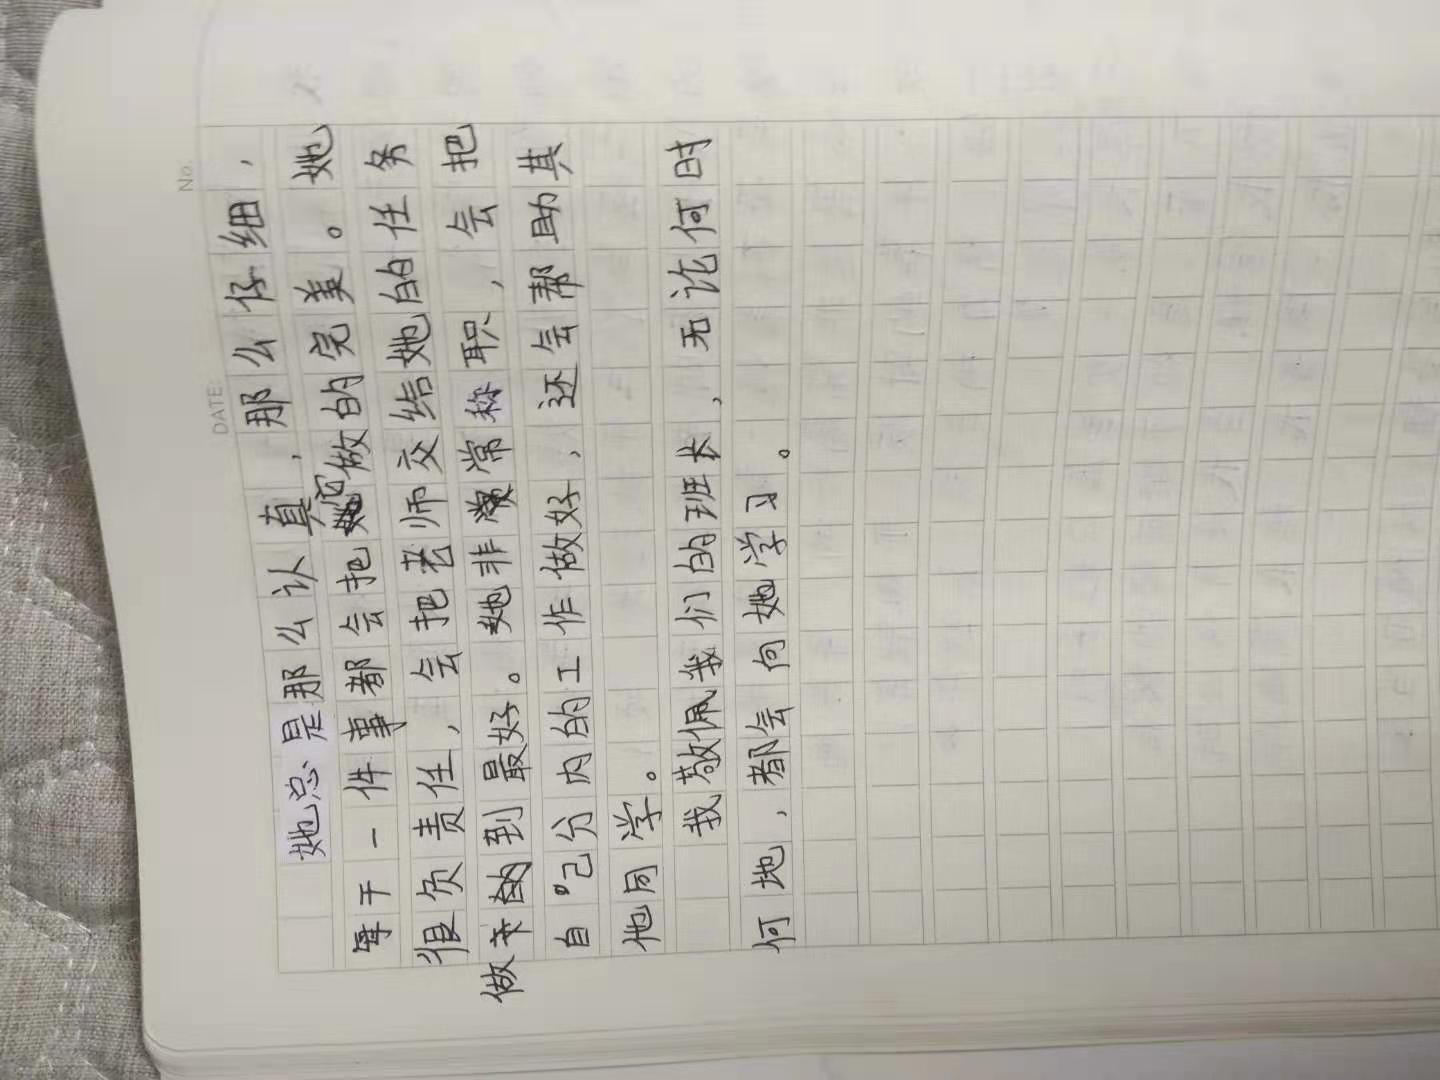 No.
DATE:
她总是那么认真,那么仔细,
每干一件事都会把它做的完美。她
很负责任,会把老师交给她的任务
做的到最好。她非常称职,会把
自己分内的工作做好,还会帮助其
他同学。
我敬佩我们的班长,无论何时
何地,都会向她学习。